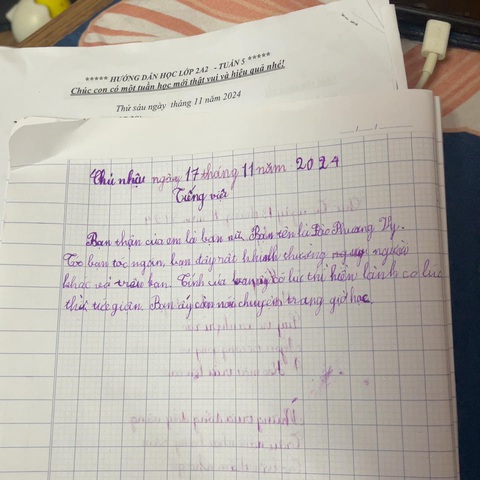 ***** HƯỚNG DẪN HỌC LỚP 2A2 - TUẦN 5 *****
Chúc con có một tuần học mới thật vui và hiệu quả nhé!
Thứ sáu ngày tháng 11 năm 2024
Chủ nhật ngày 17 tháng 11 năm 2024
Tiếng việt
Bạn thân của em là bạn nữ. Bạn tên là Bảo Phương Vy.
Tóc bạn tóc ngắn, bạn ấy rất khinh thường người
khác và trêu bạn. Tính của bạn ấy có lúc thì hiền lành có lúc
thì tức giận. Bạn ấy còn nói chuyện trong giờ học